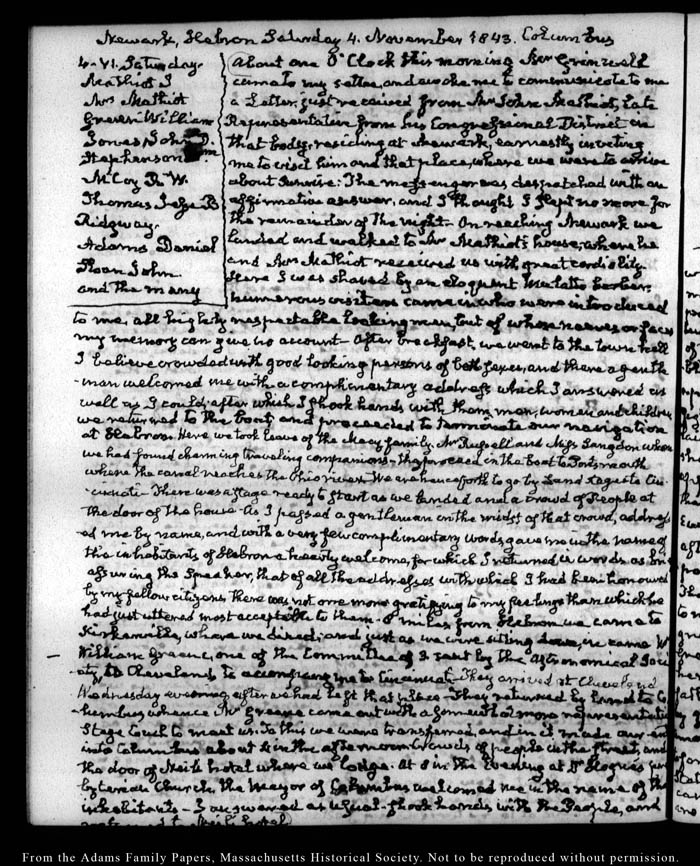 Newark, Hebron Saturday 4. November 1843. Columbus
4. VI. Saturday.
Mathiot J
Mrs Mathiot
Greer William
Jones John D.
Stephenson Wm
McCoy R. W.
Thomas
Ridgway.
Adams Daniel
Sloan John
and the many
About one O'Clock this morning Mr Grinnell
came to my settee, and awoke me to communicate to me
a Letter just received from Mr John Mathiot, late
Representative from his Congressional District in
that body, residing at Newark, earnestly inviting
me to visit him and that place, where we were to arrive
about Sunrise. The messenger was despatched with an
affirmative answer, and I thought I slept no more for
the remainder of the night. On reaching Newark we
landed and walked to Mr Mathiot's house, where he
and Mrs Mathiot received us with great cordiality.
Here I was shaved by an eloquent Mulatto barber.
numerous visitors came in who were introduced
to me, all highly respectable looking men, but of whose names or faces
my memory can give no account. After breakfast, we went to the town hall
I believe crowded with good looking persons of both sexes, and there a gentle
-man welcomed me with a complimentary address which I answered as
well as I could, after which I shook hands with them, men, women and children
we returned to the boat, and proceeded to terminate our navigation
at Hebron. Here we took leave of the Macy family, Mr Russell and Miss Langdon whom
we had found charming traveling companions. they proceed in the boat to Portsmouth
where the canal reaches the Ohio river. We are henceforth to go by Land stages to Cin
-cinnati. There was a stage ready to start as we landed and a crowd of People at
the door of the house. As I passed a gentleman in the midst of that crowd, address
ed me by name, and with a very few complimentary words, gave me in the name of
the inhabitants of Hebron a hearty welcome, for which I returned in words as brief
assuring the Speaker, that of all the addresses with which I had been honoured
by my fellow citizens, there was not one more gratifying to my feelings than which he
had just uttered most acceptable to them. 8 miles from Hebron we came to
Kirkersville, where we dined; and just as we were sitting down, in came Mr
William Greene, one of the Committee of 3 sent by the Astronomical Soci
-ety, to Cleveland, to accompany me to Cincinnati. They arrived at Cleveland
Wednesday evening, after we had left that place. They returned by land to Co
lumbus whence Mr Greene came out with a somewhat more representative
Stage Coach to meet us. To this we were transferred, and in it made our en
into Columbus about 4 in the afternoon. Crowds of people in the street, and
the door of Neil's hotel where we lodge. At 8 in the Evening at Dr Hoge's
byterian Church, the Mayor of Columbus welcomed me in the name of the
inhabitants — I answered as usual. shook hands with the People, and
Neil's hotel
From the Adams Family Papers, Massachusetts Historical Society. Not to be reproduced without permission.